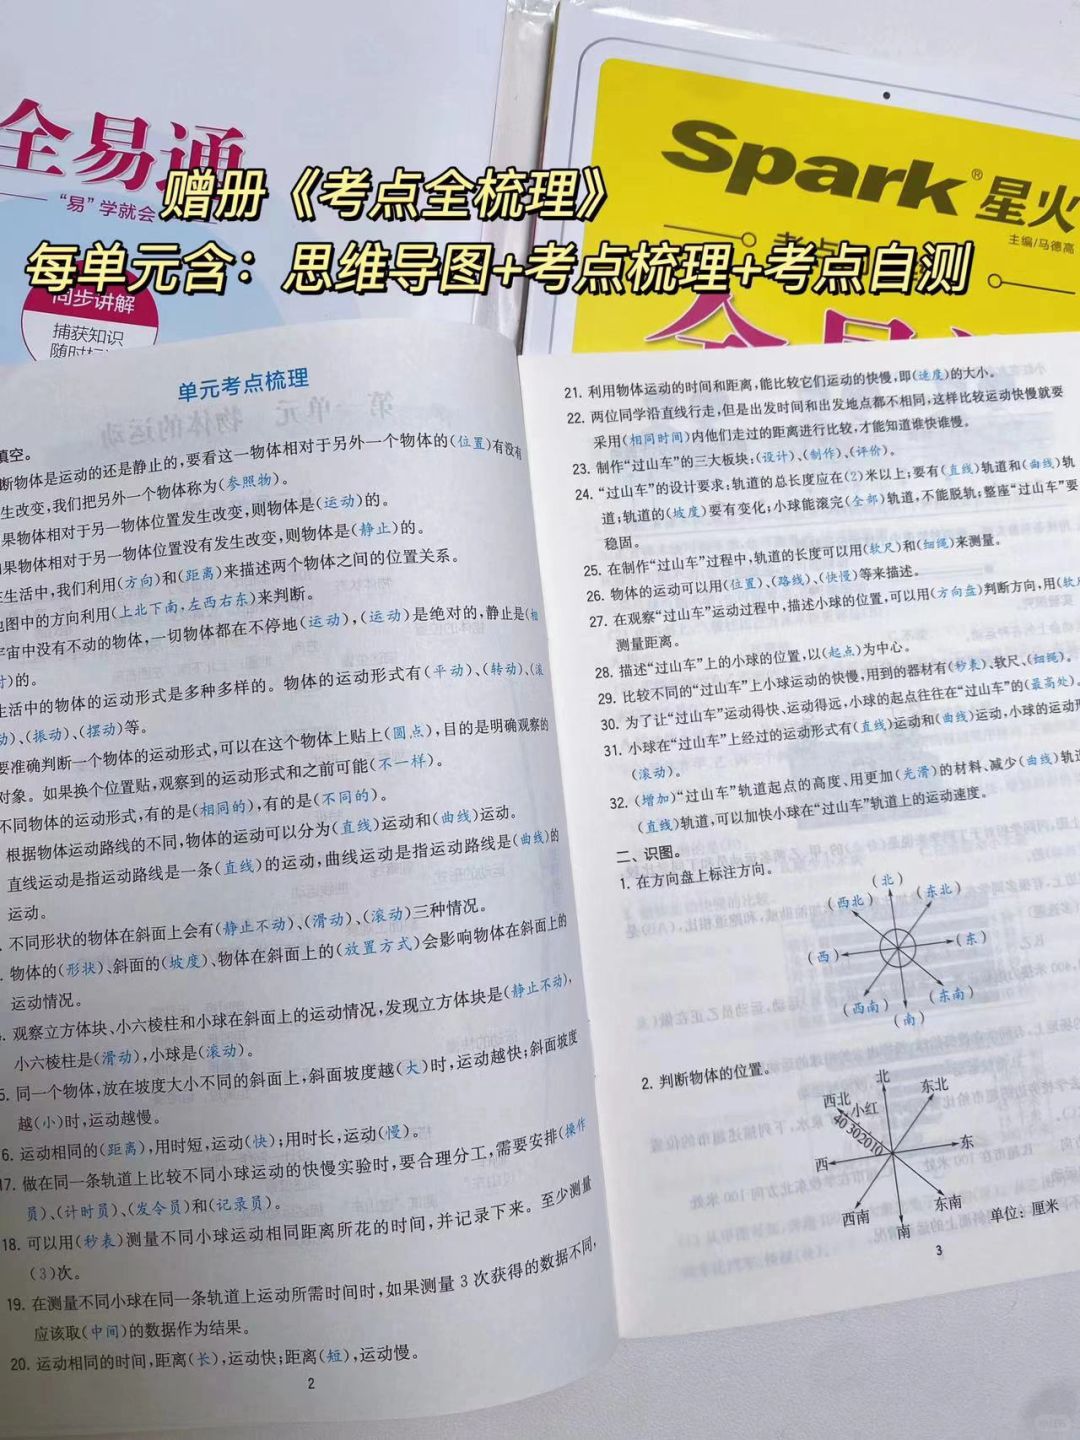 全易通
“易”学就会
同步讲解
捕获知识
Spark® 星火
主编/马德高
赠册《考点全梳理》
每单元含：思维导图+考点梳理+考点自测
单元考点梳理
填空。
断物体是运动的还是静止的，要看这一物体相对于另外一个物体的(位置)有没有
生改变，我们把另外一个物体称为(参照物)。
果物体相对于另一物体位置发生改变，则物体是(运动)的。
果物体相对于另一物体位置没有发生改变，则物体是(静止)的。
生活中，我们利用(方向)和(距离)来描述两个物体之间的位置关系。
地图中的方向利用(上北下南，左西右东)来判断。
宇宙中没有不动的物体，一切物体都在不停地(运动)，(运动)是绝对的，静止是(相
对)的。
生活中的物体的运动形式是多种多样的。物体的运动形式有(平动)、(转动)、(滚
动)、(振动)、(摆动)等。
要准确判断一个物体的运动形式，可以在这个物体上贴上(圆点)，目的是明确观察的
对象。如果换个位置贴，观察到的运动形式和之前可能(不一样)。
不同物体的运动形式，有的是(相同的)，有的是(不同的)。
根据物体运动路线的不同，物体的运动可以分为(直线)运动和(曲线)运动。
直线运动是指运动路线是一条(直线)的运动，曲线运动是指运动路线是(曲线)的
运动。
不同形状的物体在斜面上会有(静止不动)、(滑动)、(滚动)三种情况。
物体的(形状)、斜面的(坡度)、物体在斜面上的(放置方式)会影响物体在斜面上的
运动情况。
观察立方体块、小六棱柱和小球在斜面上的运动情况，发现立方体块是(静止不动)，
小六棱柱是(滑动)，小球是(滚动)。
5. 同一个物体，放在坡度大小不同的斜面上，斜面坡度越(大)时，运动越快；斜面坡度
越(小)时，运动越慢。
6. 运动相同的(距离)，用时短，运动(快)；用时长，运动(慢)。
17. 做在同一条轨道上比较不同小球运动的快慢实验时，要合理分工，需要安排(操作
员)、(计时员)、(发令员)和(记录员)。
18. 可以用(秒表)测量不同小球运动相同距离所花的时间，并记录下来。至少测量
(3)次。
19. 在测量不同小球在同一条轨道上运动所需时间时，如果测量 3 次获得的数据不同，
应该取(中间)的数据作为结果。
20. 运动相同的时间，距离(长)，运动快；距离(短)，运动慢。
2
21. 利用物体运动的时间和距离，能比较它们运动的快慢，即(速度)的大小。
22. 两位同学沿直线行走，但是出发时间和出发地点都不相同，这样比较运动快慢就要
采用(相同时间)内他们走过的距离进行比较，才能知道谁快谁慢。
23. 制作“过山车”的三大板块：(设计)、(制作)、(评价)。
24. “过山车”的设计要求：轨道的总长度应在(2)米以上；要有(直线)轨道和(曲线)轨
道；轨道的(坡度)要有变化；小球能滚完(全部)轨道，不能脱轨；整座“过山车”要
稳固。
25. 在制作“过山车”过程中，轨道的长度可以用(软尺)和(细绳)来测量。
26. 物体的运动可以用(位置)、(路线)、(快慢)等来描述。
27. 在观察“过山车”运动过程中，描述小球的位置，可以用(方向盘)判断方向，用(软尺
测量距离。
28. 描述“过山车”上的小球的位置，以(起点)为中心。
29. 比较不同的“过山车”上小球运动的快慢，用到的器材有(秒表)、软尺、(细绳)。
30. 为了让“过山车”运动得快、运动得远，小球的起点往往在“过山车”的(最高处)。
31. 小球在“过山车”上经过的运动形式有(直线)运动和(曲线)运动，小球的运动形
(滚动)。
32. (增加)“过山车”轨道起点的高度、用更加(光滑)的材料、减少(曲线)轨道
(直线)轨道，可以加快小球在“过山车”轨道上的运动速度。
二、识图。
1. 在方向盘上标注方向。
(北)
(西北) (东北)
(西) (东)
(西南) (东南)
(南)
2. 判断物体的位置。
北
西北 东北
小红
40 30 20 10
西 东
西南 东南
南
单位：厘米
3